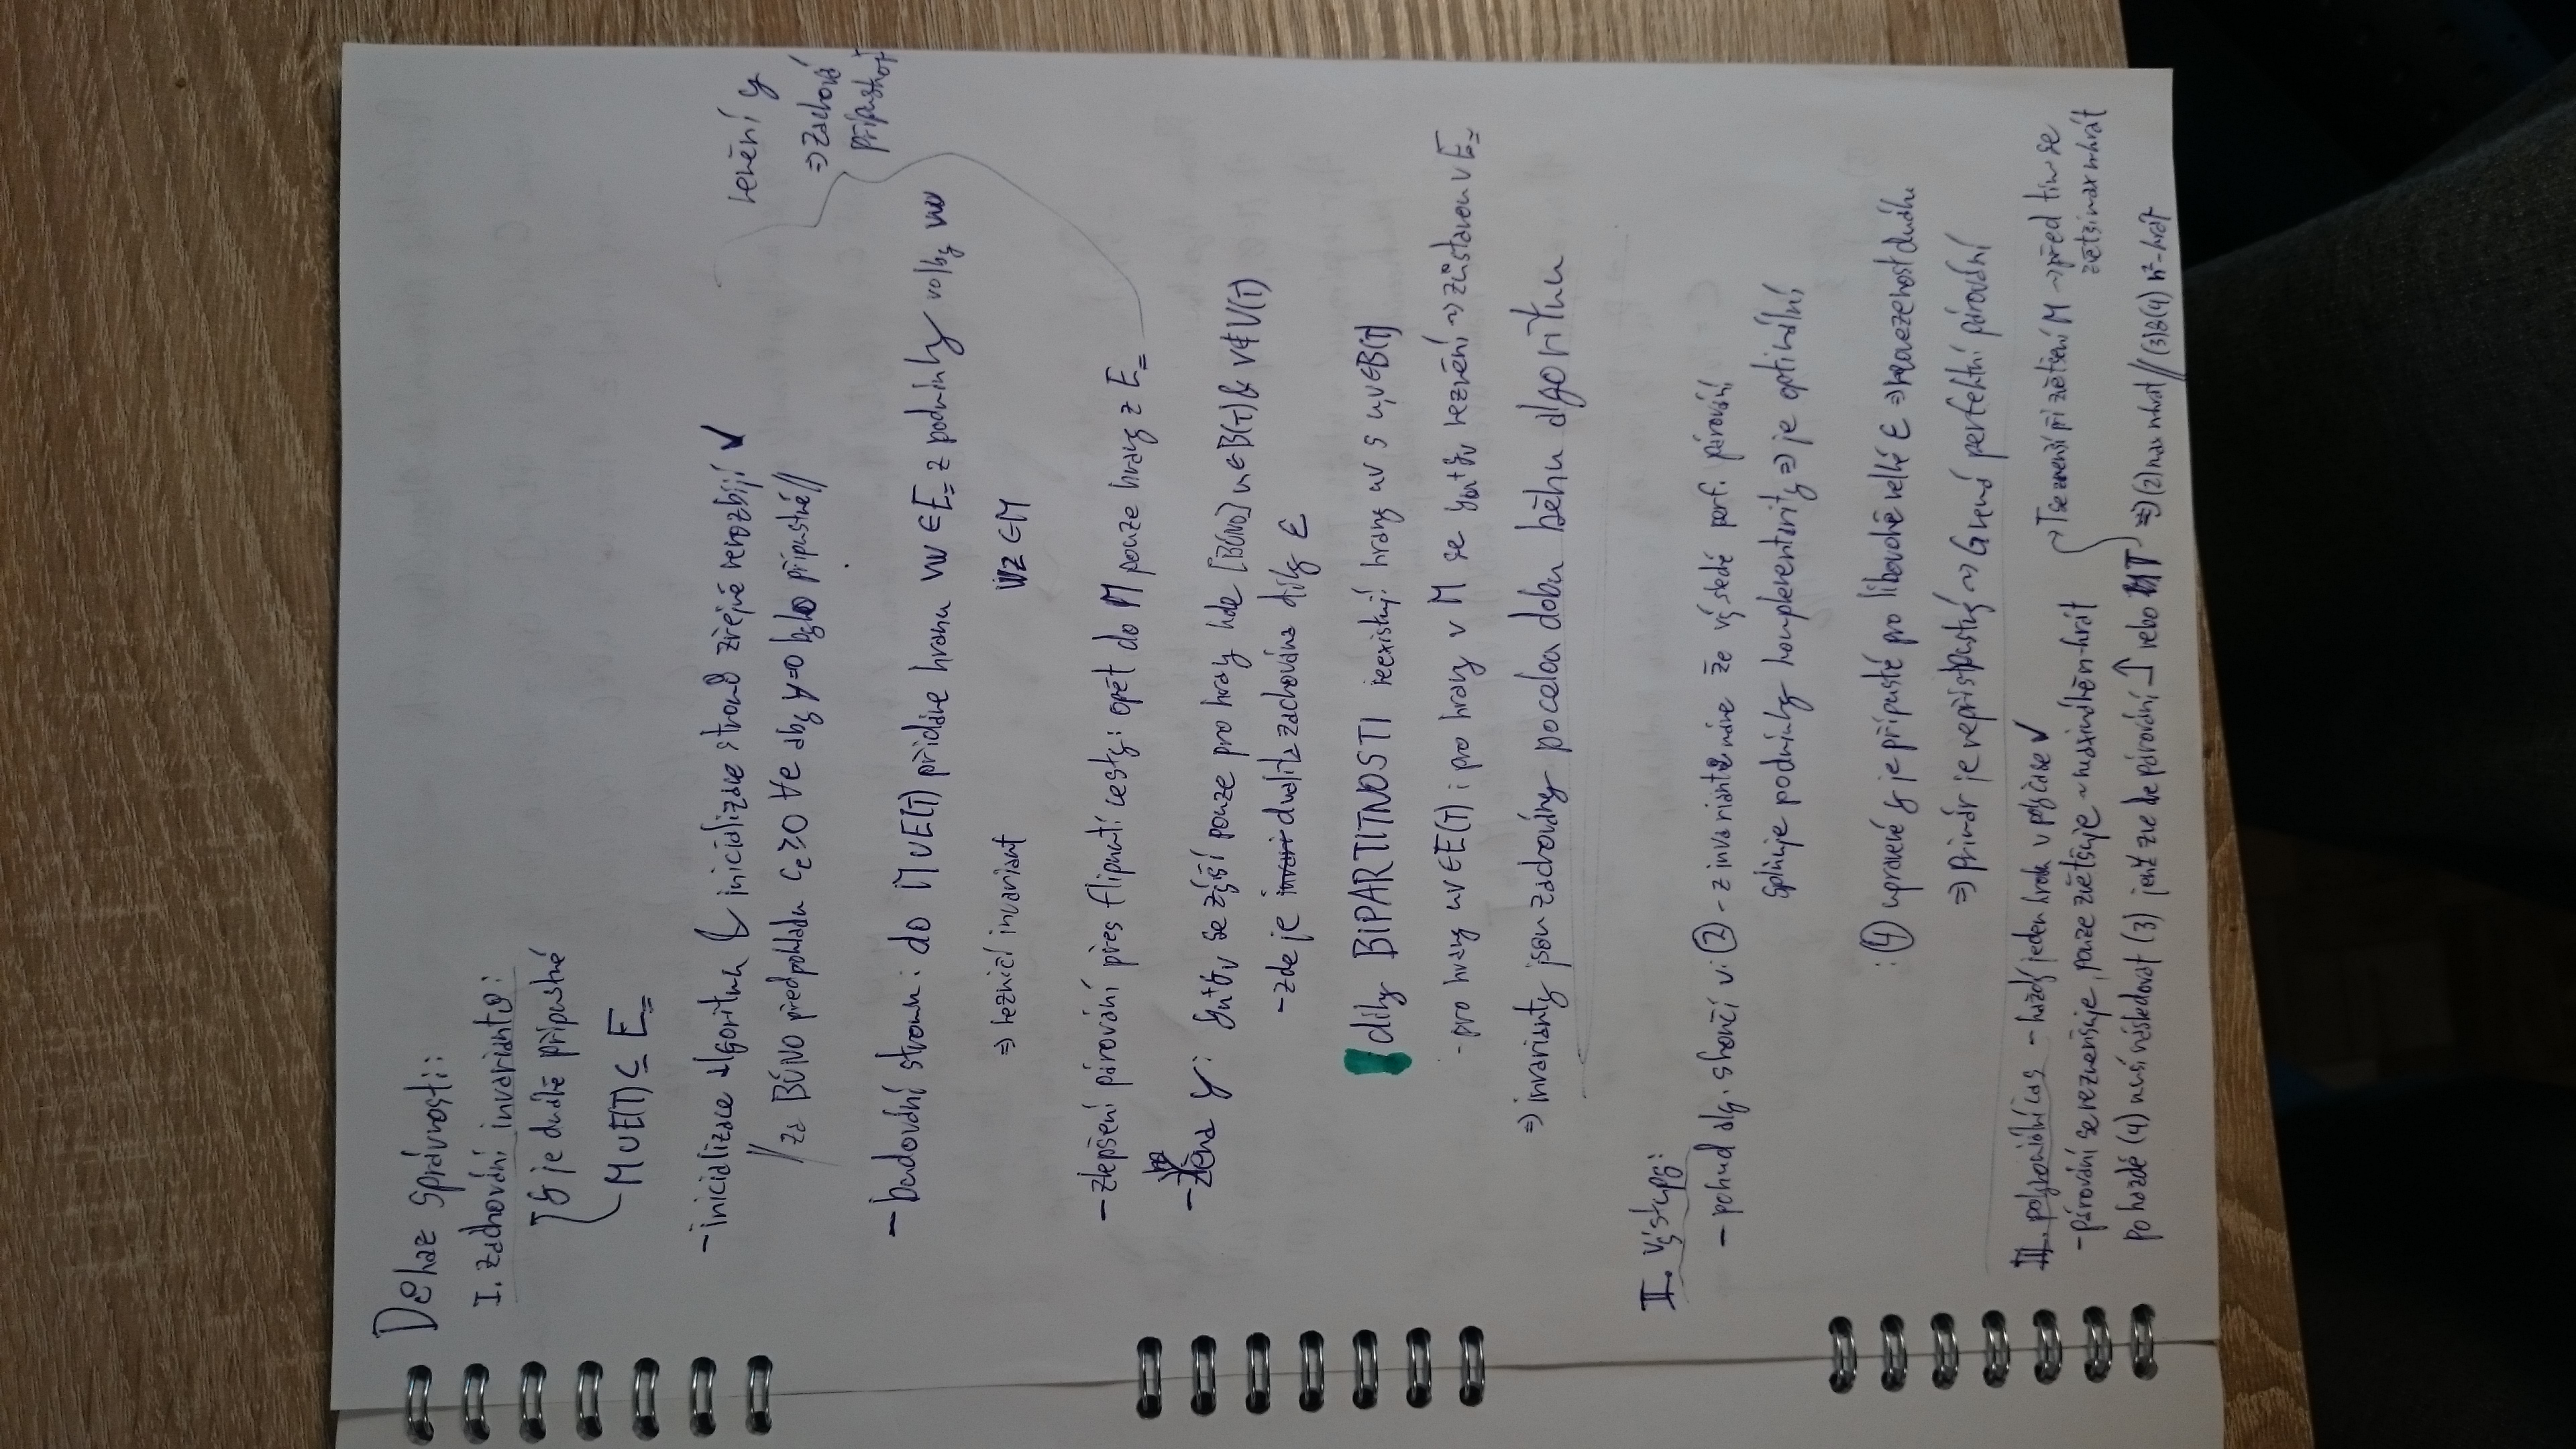 Důkaz správnosti:
I. zachování invariantů:
y je duálně přípustné
M∪E(T) ⊆ E=
- inicializace algoritmu & inicializace stromů zřejmě nerozbíjí ✓
// za BÚNO předpokladu cₑ ≥ 0 ∀e aby y=0 bylo přípustné //
- budování stromu: do M∪E(T) přidáme hranu vw ∈ E= z podmínky volby vw
wz ∈ M
⇒ nezničí invariant
nemění y
⇒ zachová
přípustnost
- zlepšení párování přes flipnutí cesty: opět do M pouze hrany z E=
- změna y: yu+yv se zvýší pouze pro hrany kde [BÚNO] u∈B(T) & v∉V(T)
- zde je dualita zachována díky ε
díky BIPARTITNOSTI neexistují hrany uv s u,v∈B(T)
- pro hrany uv∈E(T) i pro hrany v M se yu+yv nezmění ⇝ zůstanou v E=
⇒ invarianty jsou zachovány po celou dobu běhu algoritmu
II. výstupy:
- pokud alg. skončí v: ② - z invariantů máme že výsledné perf. párování
splňuje podmínky komplementarity ⇒ je optimální
: ④ upravené y je přípustné pro libovolně velké ε ⇒ neomezenost duálu
⇒ primár je nepřípustný ⇝ G nemá perfektní párování
III. polynomiální čas - každý jeden krok v polyčase ✓
- párování se nezmenšuje, pouze zvětšuje ~ maximálně n-krát
po každé (4) musí následovat (3) jenž zvětší párování ↑ nebo T
→ T se zmenší při zvětšení M ⇝ před tím se
zvětší max n krát
⇒ (2) max n krát // (3) & (4) n²-krát